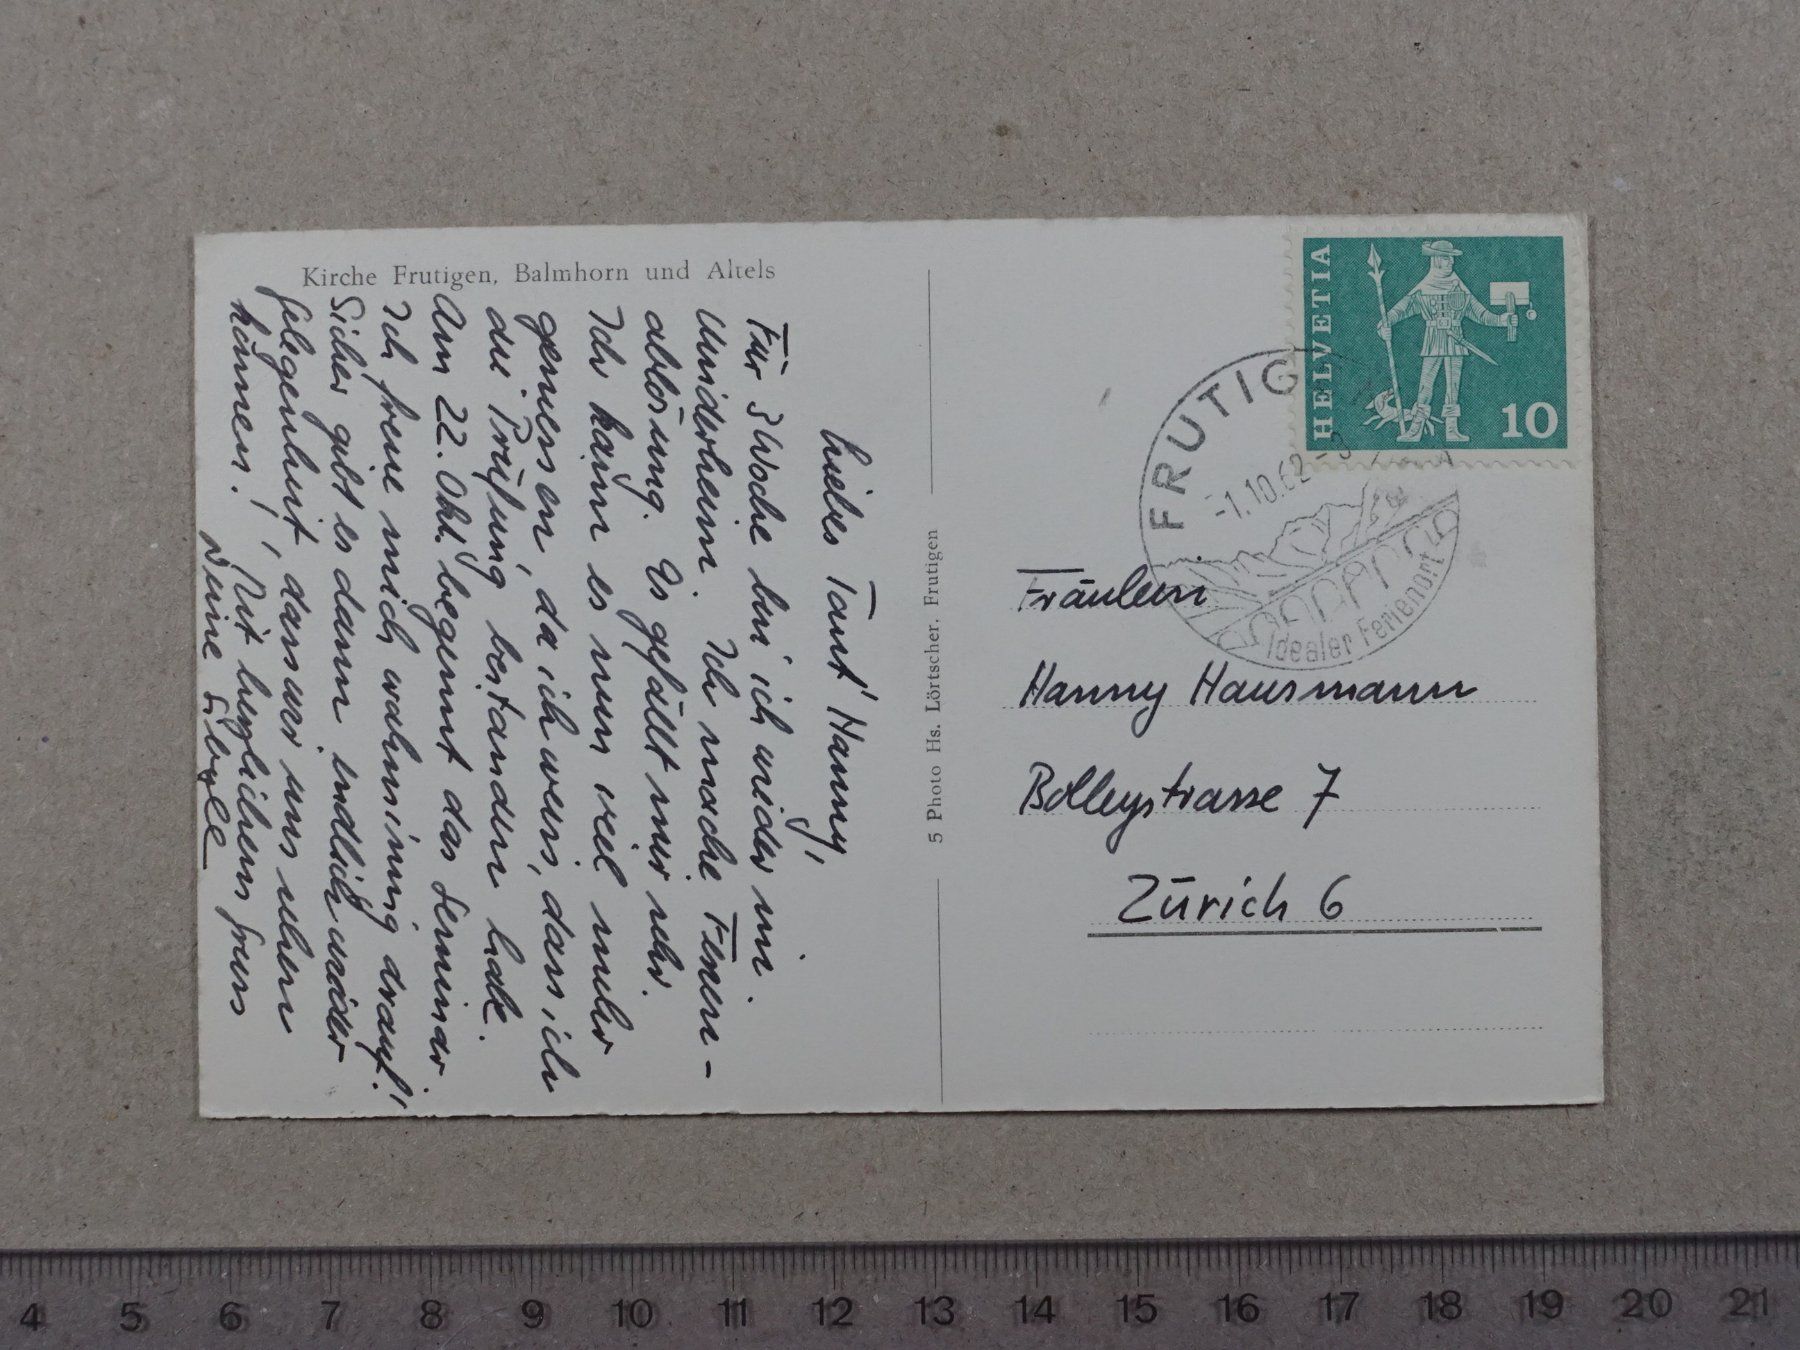 Kirche Frutigen, Balmhorn und Altels
Liebes Tant' Hanny,
Für 3 Woche bin ich wieder im
Uniderheim Ich mache Ferien-
ablösung. Es gefällt mir sehr.
Ich kann es nun viel mehr
geniessen, da ich weiss, dass ich
die Prüfung bestanden habe.
Am 22. Okt. beginnt das Seminar.
Ich freue mich wahnsinnig drauf!
Sicher gibt es dann endlich wieder
Gelegenheit, dass wir uns sehen
können! Mit herzlichem Gruss
Deine Sibylle
5 Photo Hs. Lörtscher, Frutigen
HELVETIA
10
FRUTIG
-1.10.62-3
Idealer Ferienort
Fräulein
Hanny Hausmann
Bolleystrasse 7
Zürich 6
4 5 6 7 8 9 10 11 12 13 14 15 16 17 18 19 20 21